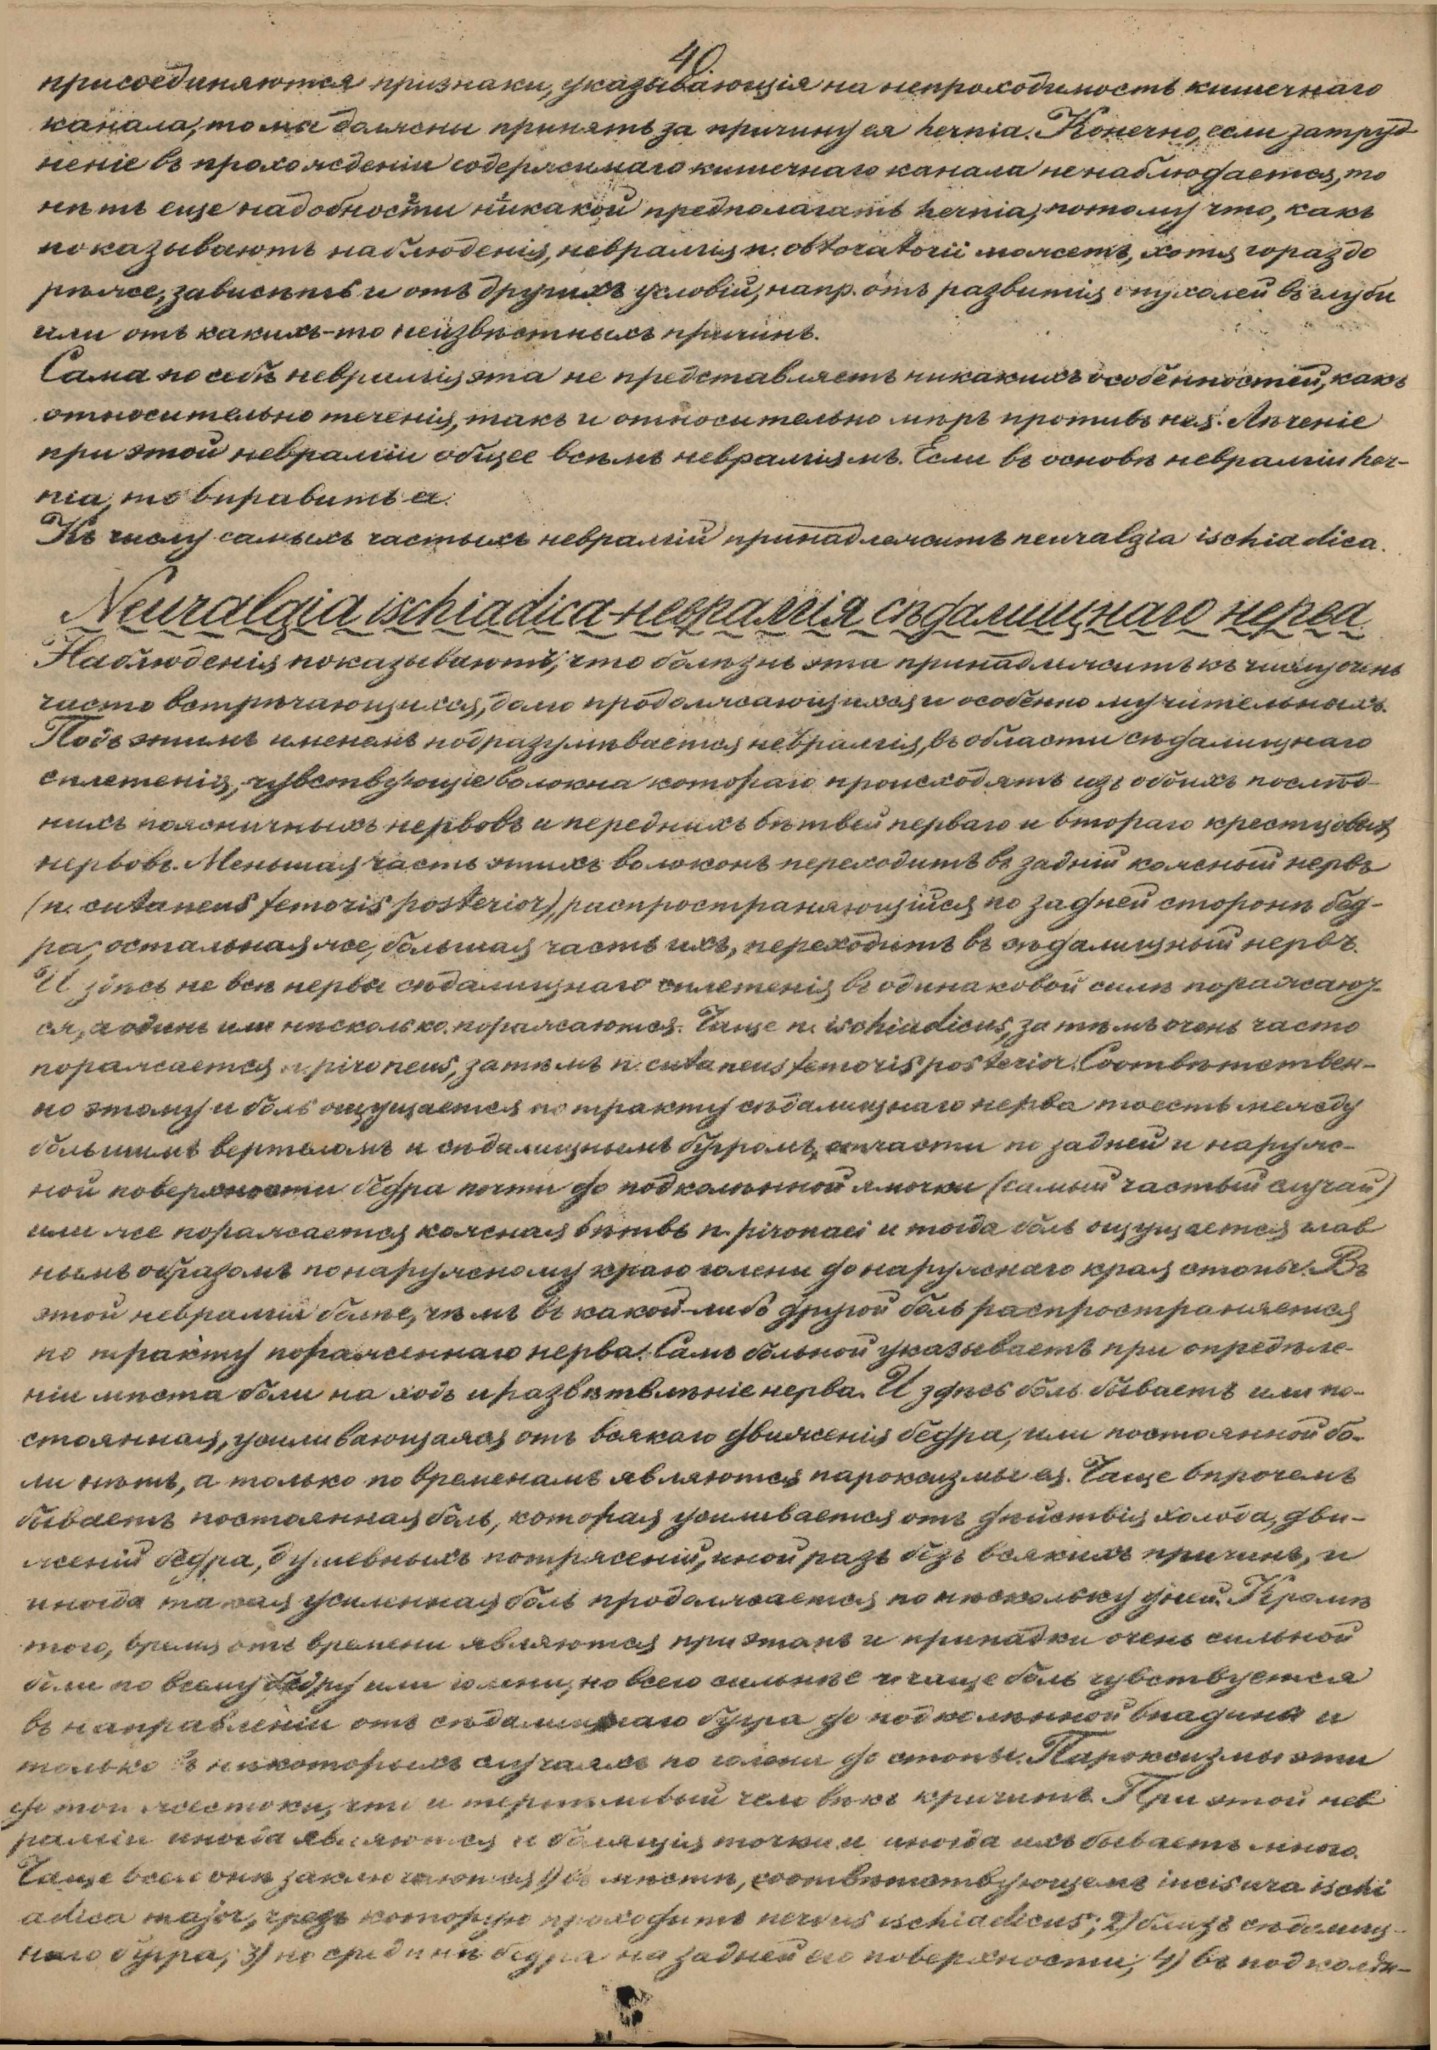 40
присоединяются признаки, указывающія на непроходимость кишечнаго
канала, то мы должны принять за причину ея hernia. Конечно, если затруд-
неніе въ прохожденіи содержимаго кишечнаго канала не наблюдается, то
нѣтъ еще надобности никакой предполагать hernia, потому что, какъ
показываютъ наблюденія, невралгія n. obtoratorii можетъ, хотя гораздо
рѣже, зависѣть и отъ другихъ условій, напр. отъ развитія опухолей въ глуби
или отъ какихъ-то неизвѣстныхъ причинъ.
Сама по себѣ невралгія эта не представляетъ никакихъ особенностей, какъ
относительно теченія, такъ и относительно мѣръ противъ нея. Лѣченіе
при этой невралгіи общее всѣмъ невралгіямъ. Если въ основѣ невралгіи her-
nia, то вправить ея.
Къ числу самыхъ частыхъ невралгій принадлежитъ neuralgia ischiadica.
Neuralgia ischiadica-невралгія сѣдалищнаго нерва.
Наблюденія показываютъ, что болѣзнь эта принадлежитъ къ числу очень
часто встрѣчающихся, долго продолжающихся и особенно мучительныхъ.
Подъ этимъ именемъ подразумѣвается невралгія, въ области сѣдалищнаго
сплетенія, чувствующіе волокна котораго происходятъ изъ обоихъ послѣд-
нихъ поясничныхъ нервовъ и переднихъ вѣтвей перваго и втораго крестцовыхъ
нервовъ. Меньшая часть этихъ волоконъ переходитъ въ задній кожный нервъ
(n. cutaneus femoris posterior), распространяющійся по задней сторонѣ бед-
ра, остальная же, большая часть ихъ, переходитъ въ сѣдалищный нервъ.
И здѣсь не всѣ нервы сѣдалищнаго сплетенія въ одинаковой силѣ поражают-
ся, а одинъ или нѣсколько поражаются. Чаще n. ischiadicus, затѣмъ очень часто
поражается n. pironeus, затѣмъ n. cutaneus femoris posterior. Соотвѣтствен-
но этому и боль ощущается по тракту сѣдалищнаго нерва то есть между
большимъ вертеломъ и сѣдалищнымъ бугромъ, отчасти по задней и наруж-
ной поверхности бедра почти до подколѣнной ямочки (самый частый случай)
или же поражается кожная вѣтвь n. pironaei и тогда боль ощущается глав
нымъ образомъ по наружному краю голени до наружнаго края стопы. Въ
этой невралгіи болѣе, чѣмъ въ какой-либо другой боль распространяется
по тракту пораженнаго нерва. Самъ больной указываетъ при опредѣле-
ніи мѣста боли на ходъ и развѣтвлѣніе нерва. И здѣсь боль бываетъ или по-
стоянная, усиливающаяся отъ всякаго движенія бедра, или постоянной бо-
ли нѣтъ, а только по временамъ являются пароксизмы ея. Чаще впрочемъ
бываетъ постоянная боль, которая усиливается отъ дѣйствія холода, дви-
женій бедра, душевныхъ потрясеній, иной разъ безъ всякихъ причинъ, и
иногда такая усиленная боль продолжается по нѣскольку дней. Кромѣ
того, время отъ времени являются при этомъ и припадки очень сильной
боли по всему бедру или голени, но всего сильнѣе и чаще боль чувствуется
въ направленіи отъ сѣдалищнаго бугра до подколѣнной впадины и
только въ нѣкоторыхъ случаяхъ по голени до стопы. Пароксизмы эти
до того жестоки, что и терпѣливый человѣкъ кричитъ. При этой нев
ралгіи иногда являются и болящія точки и иногда ихъ бываетъ много.
Чаще всего онѣ заключаются 1) въ мѣстѣ, соотвѣтствующемъ incisura ischi
adica major, чрезъ которую проходитъ nervus ischiadicus; 2) близъ сѣдалищ-
наго бугра; 3) по срединѣ бедра на задней его поверхности; 4) въ подколѣн-